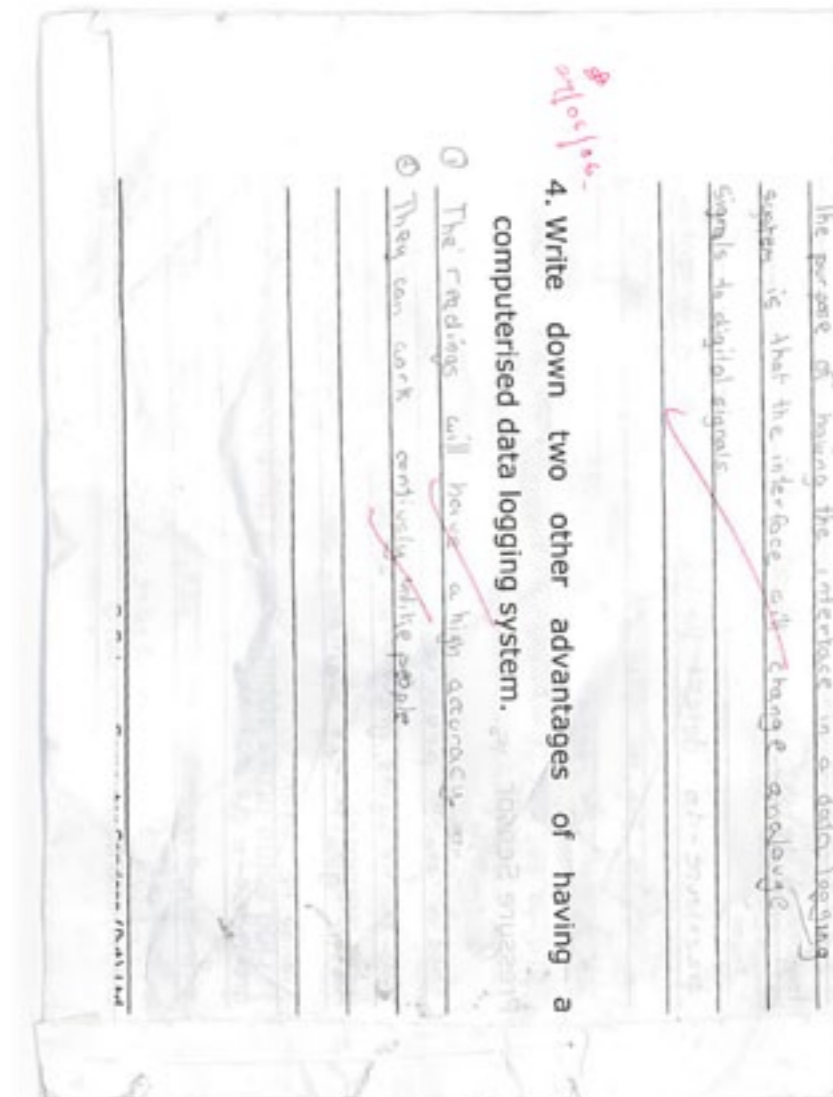 The purpose of having the interface in a data logging
system is that the interface will change analouge
signals to digital signals
4. Write down two other advantages of having a
computerised data logging system.
① The readings will have a high accuracy
② They can work contively unlike people
27/06/06